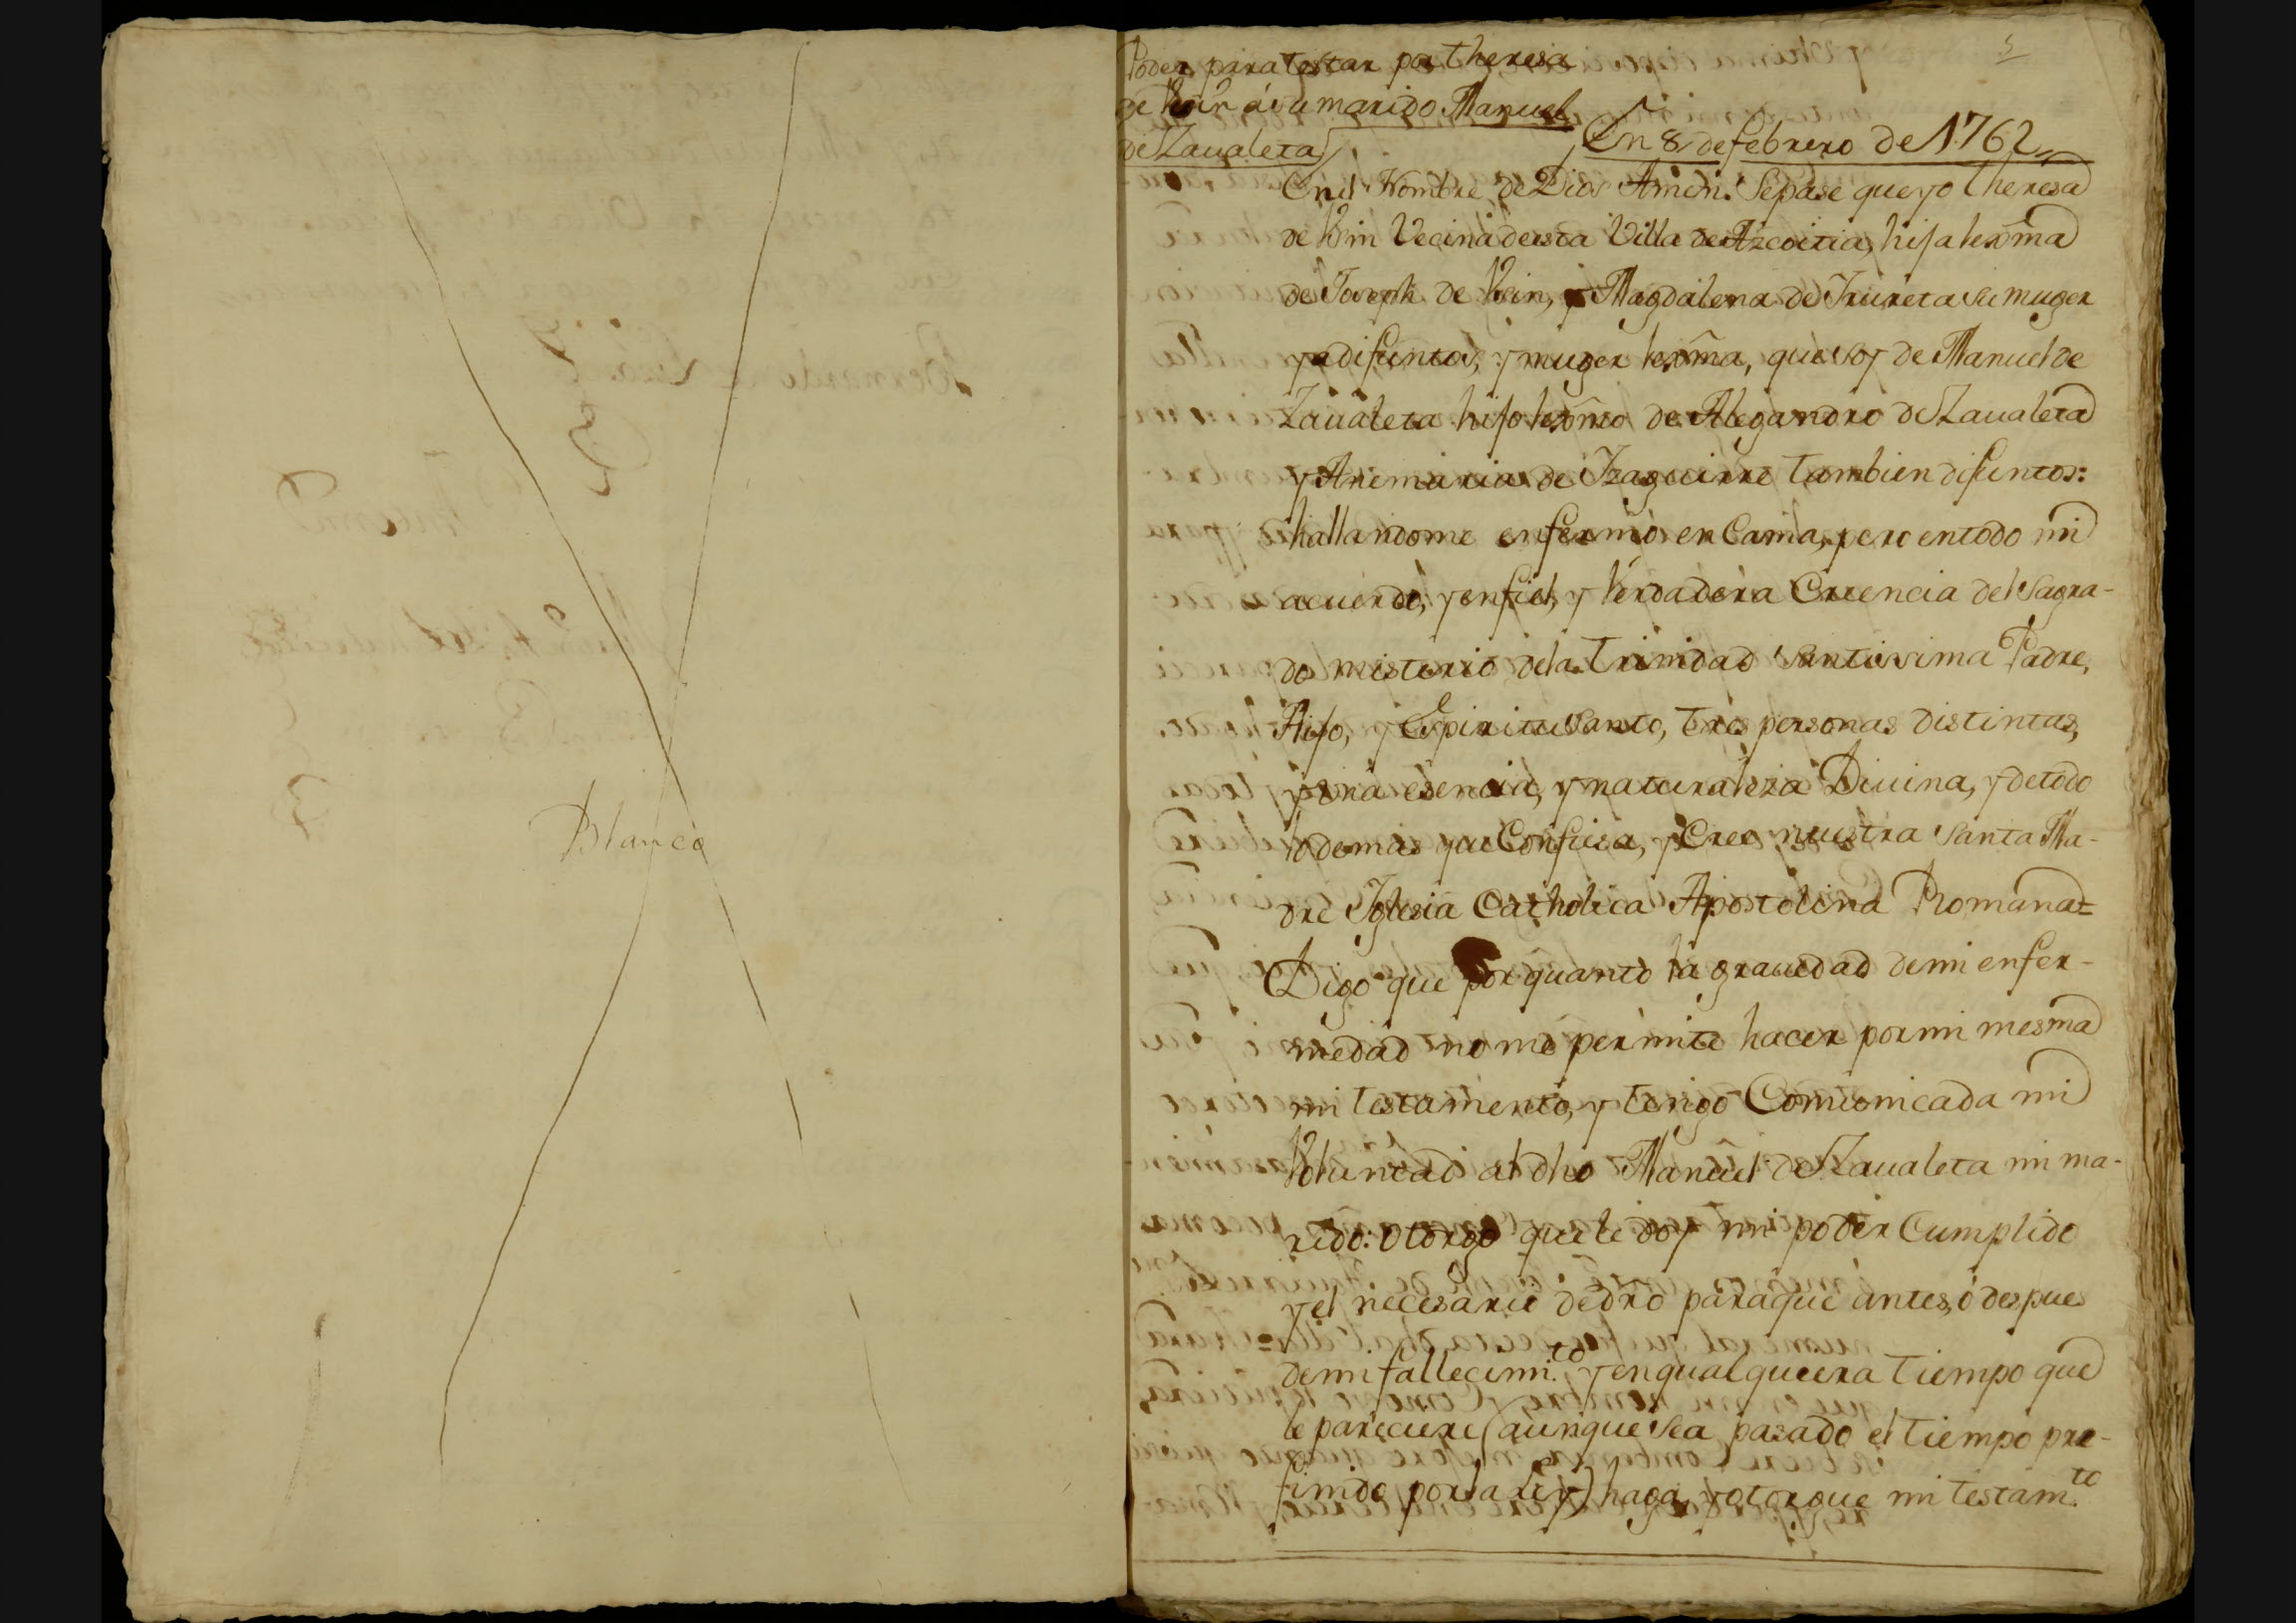 Blanco
5
Poder para testar por Theresa
de Vzin á su marido Manuel
de Zaualeta
En 8 de febrero de 1762
En el Nombre de Dios Amen. Sepase que yo Theresa
de Vzin Vecina de esta Villa de Azcoitia, hija lexma
de Joseph de Vzin, y Magdalena de Irureta su muger
ya difuntos, y muger lexma, que soy de Manuel de
Zaualeta hijo lexmo de Alegandro de Zaualeta
y Anamaria de Izaguirre tambien difuntos:
hallandome enferma en Cama, pero entodo mi
acuerdo, y enfiel, y Verdadera Creencia del Sagra-
do misterio dela Trinidad Santissima Padre,
Hijo, y Espiritu Santo, tres personas distintas,
y una esencia, y naturaleza Diuina, y detodo
lo demas que Confiesa, y Cree nuestra Santa Ma-
dre Iglesia Catholica Apostolica Romana=
Digo que por quanto la grauedad demi enfer-
medad no me permite hacer por mi mesma
mi testamento, y tengo Comunicada mi
Voluntad al dho Manuel de Zaualeta mi ma-
rido: Otorgo que le doy mi poder Cumplido
y el necesario de dro paraque antes, ó despues
demi fallecimto. y enqualquiera tiempo que
le pareciere (aunque sea pasado el tiempo pre-
finido por la ley) haga, y otorgue mi testamto.